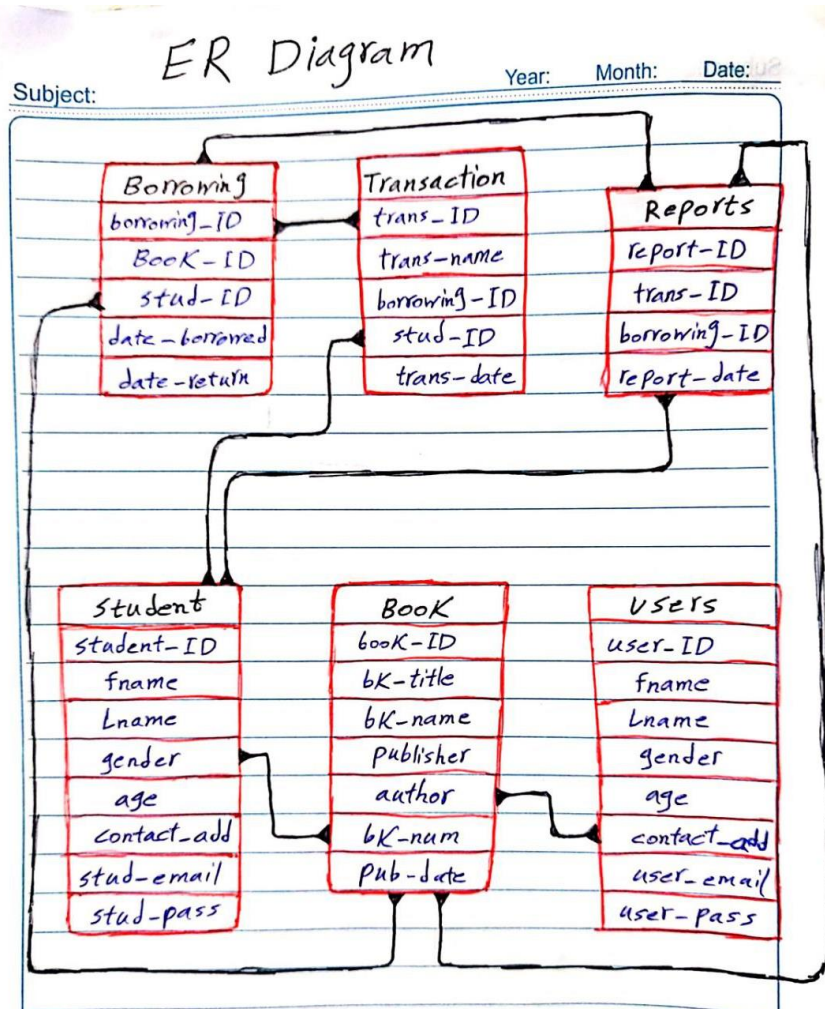 ER Diagram
Subject:
Year: Month: Date:
Borrowing
borrowing_ID
BooK-ID
stud-ID
date-borrowed
date-return
Transaction
trans_ID
trans-name
borrowing-ID
stud-ID
trans-date
Reports
report-ID
trans-ID
borrowing-ID
report-date
Student
student-ID
fname
Lname
gender
age
contact_add
stud-email
stud-pass
BooK
booK-ID
bK-title
bK-name
Publisher
author
bK-num
Pub-date
Users
user-ID
fname
Lname
gender
age
contact_add
user_email
user-Pass